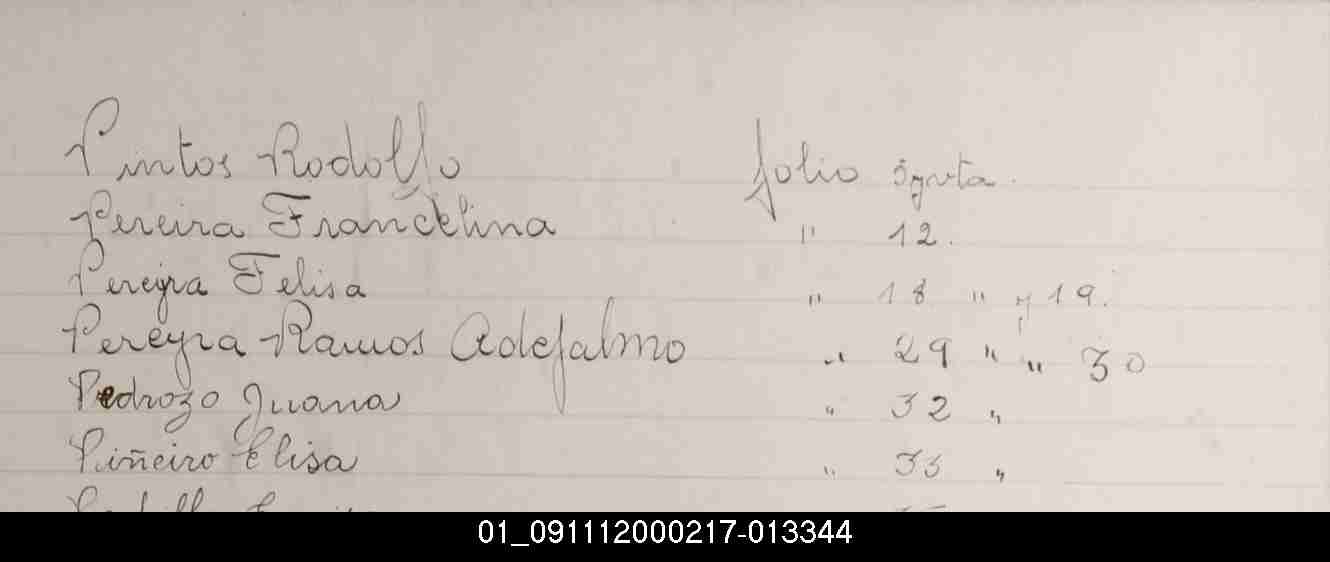 Pintos Rodolfo folio 5 y vta.
Pereira Francelina " 12.
Pereyra Felisa " 18 " y 19.
Pereyra Ramos Adefalmo " 29 " " 30
Pedrozo Juana " 32 "
Piñeiro Elisa " 33 "
01_091112000217-013344